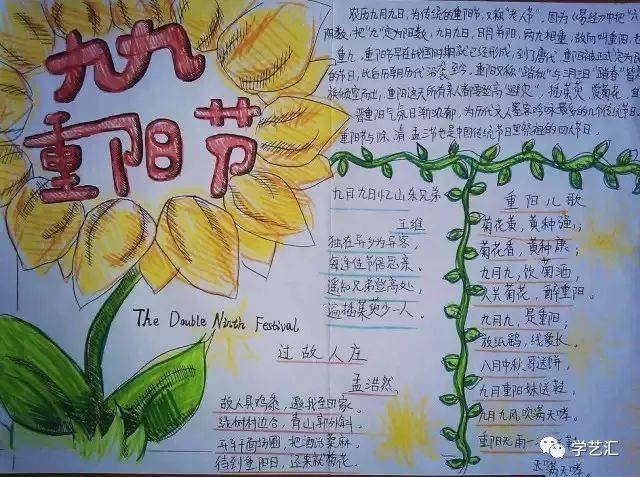 九九
重阳节
农历九月九日,为传统的重阳节,又称"老人节"。因为《易经》中把"六"
阳数,把"九"定为阳数,九月九日,日月并阳,两九相重,故而叫重阳,也
重九。重阳节早在战国时期就已经形成,到了唐代,重阳被正式定为
的节日,此后历朝历代沿袭至今。重阳又称"踏秋"与三月三日"踏春"皆
族倾室而出,重阳这天所有亲人都要登高"避灾",插茱萸、赏菊花。自
晋重阳气氛日渐浓郁,为历代文人墨客吟咏最多的几个传统节日
重阳节与除、清、盂三节也是中国传统节日里祭祖的四大节日。
九月九日忆山东兄弟
王维
独在异乡为异客,
每逢佳节倍思亲。
遥知兄弟登高处,
遍插茱萸少一人。
The Double Ninth Festival
过故人庄
孟浩然
故人具鸡黍,邀我至田家。
绿树村边合,青山郭外斜。
开轩面场圃,把酒话桑麻。
待到重阳日,还来就菊花。
重阳儿歌
菊花黄,黄种强;
菊花香,黄种康;
九月九,饮菊酒,
人共菊花,醉重阳。
九月九,是重阳;
放纸鹞,线爰长。
八月中秋,哥送饼,
九月重阳妹送鞋,
九月九风吹满天哮。
重阳无雨一
满天哮。
学艺汇